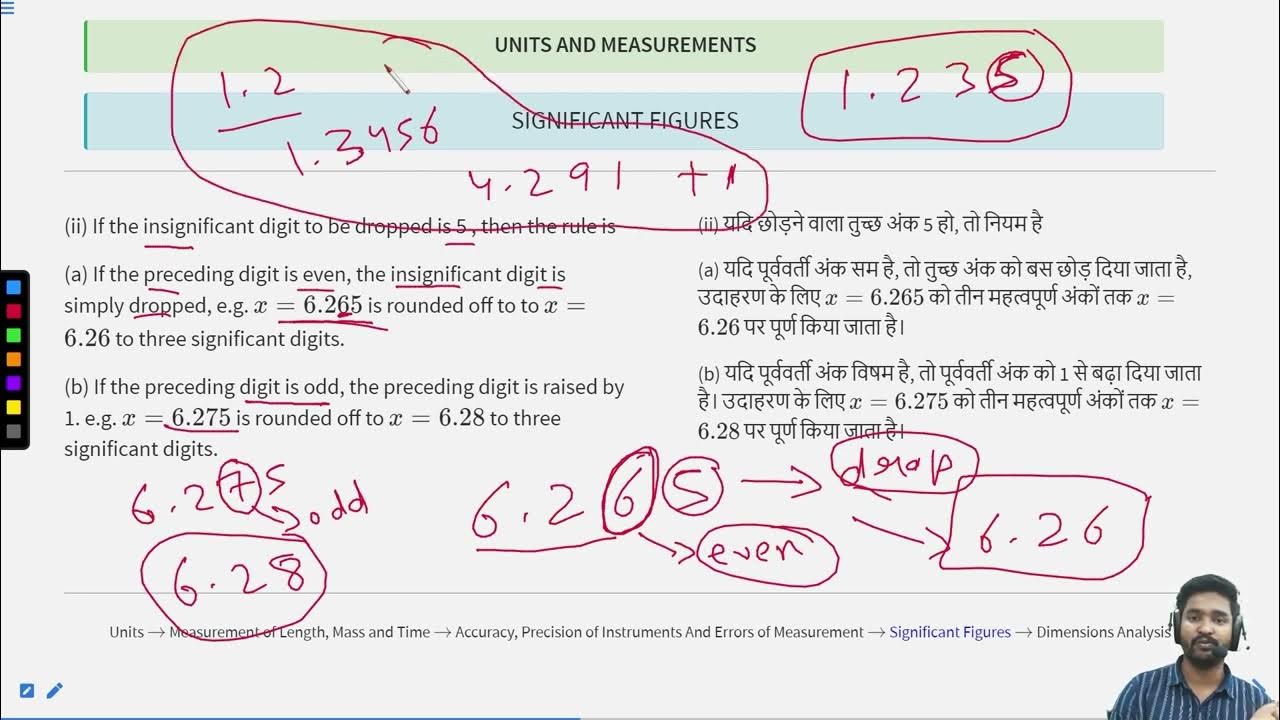 UNITS AND MEASUREMENTS
1.2
1.235
SIGNIFICANT FIGURES
1.3456
4.291 +1
(ii) If the insignificant digit to be dropped is 5 , then the rule is
(a) If the preceding digit is even, the insignificant digit is
simply dropped, e.g. x = 6.265 is rounded off to to x =
6.26 to three significant digits.
(b) If the preceding digit is odd, the preceding digit is raised by
1. e.g. x = 6.275 is rounded off to x = 6.28 to three
significant digits.
(ii) यदि छोड़ने वाला तुच्छ अंक 5 हो, तो नियम है
(a) यदि पूर्ववर्ती अंक सम है, तो तुच्छ अंक को बस छोड़ दिया जाता है,
उदाहरण के लिए x = 6.265 को तीन महत्वपूर्ण अंकों तक x =
6.26 पर पूर्ण किया जाता है।
(b) यदि पूर्ववर्ती अंक विषम है, तो पूर्ववर्ती अंक को 1 से बढ़ा दिया जाता
है। उदाहरण के लिए x = 6.275 को तीन महत्वपूर्ण अंकों तक x =
6.28 पर पूर्ण किया जाता है।
6.275
odd
6.28
6.265 → drop
even
6.26
Units → Measurement of Length, Mass and Time → Accuracy, Precision of Instruments And Errors of Measurement → Significant Figures → Dimensions Analysis